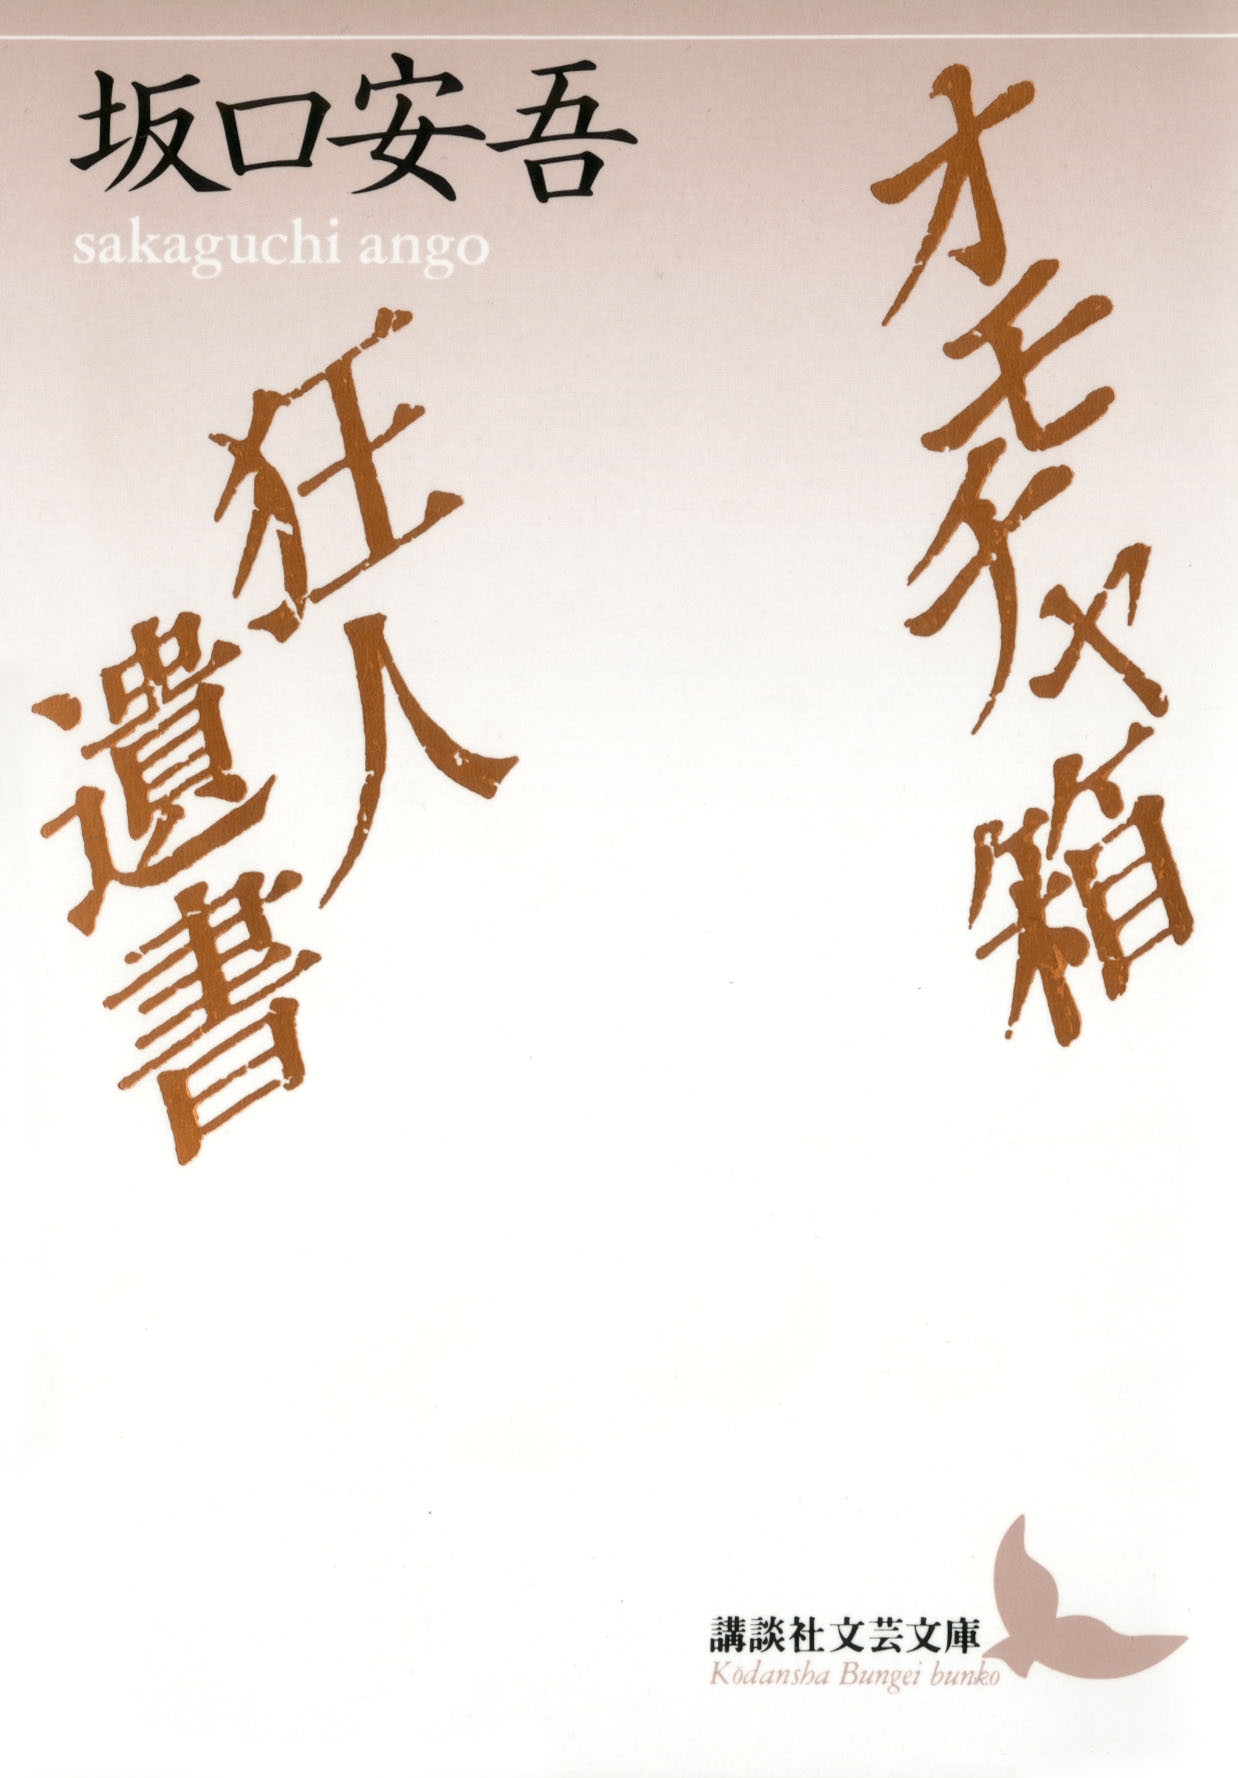 坂口安吾
sakaguchi ango
オモチャ箱
狂人
遺書
講談社文芸文庫
Kōdansha Bungei bunko